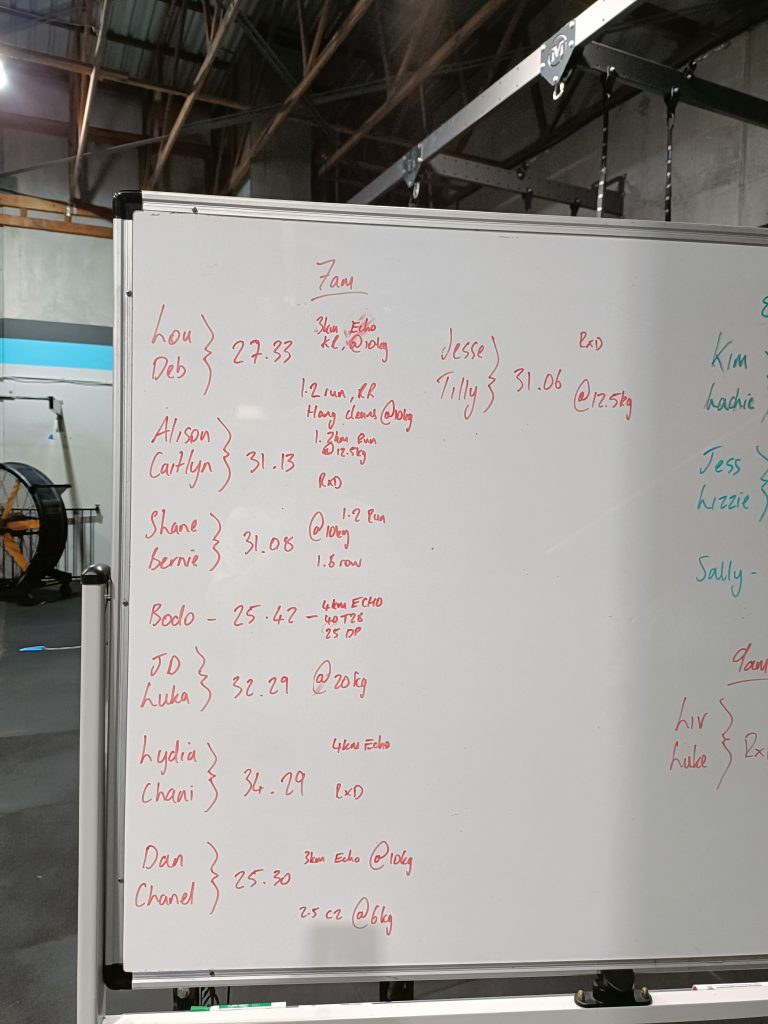 7am
Lou
Deb
27.33
3km Echo
KR, @10kg
1.2 run, RR
Hang cleans @10kg
Alison
Caitlyn
31.13
1.2km Run
@12.5kg
RxD
Shane
Bernie
31.08
@10kg
1.2 Run
1.8 row
Bodo - 25.42 - 4km ECHO
40 T2B
25 DP
JD
Luka
32.29 @20kg
Lydia
Chani
34.29
4km Echo
RxD
Dan
Chanel
25.30
3km Echo @10kg
2.5 C2 @6kg
Jesse
Tilly
31.06
RxD
@12.5kg
Kim
Lachie
Jess
Lizzie
Sally -
9am
Liv
Luke
M